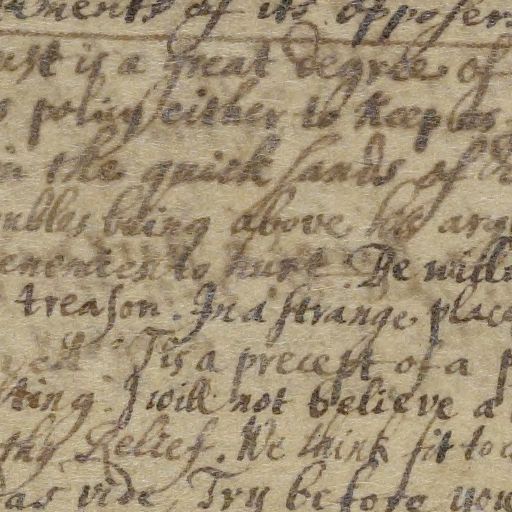 ments of its opposers
ust is a great degree of
s policy either to keep us
in the quick sands of
umbles being above his arg
enemies to hurt. Be willi
treason. In a strange place
well Tis a precept of a p
sting. I will not believe a
thy Relief. We think fit to
as vide Try before you